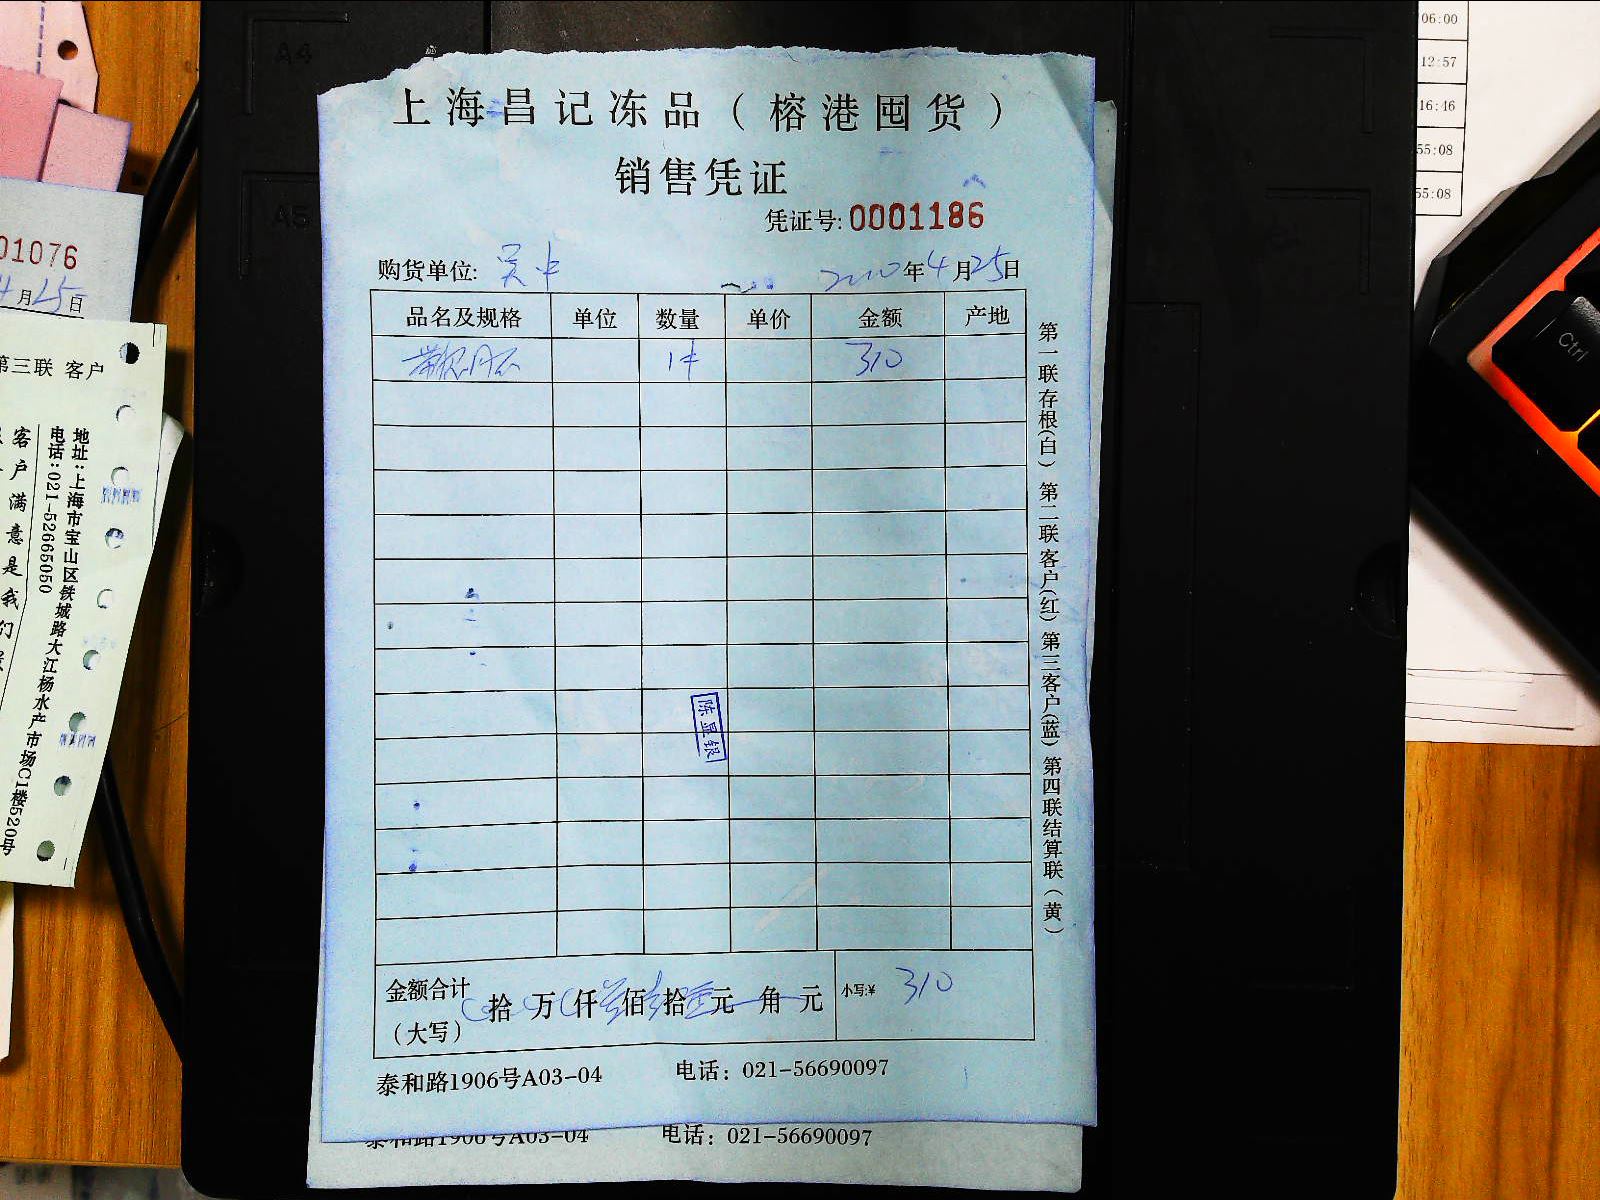 上海昌记冻品（榕港囤货）
销售凭证
凭证号: 0001186
购货单位: 吴中 2020年4月25日
品名及规格 单位 数量 单价 金额 产地
1件 310
陈显银
金额合计
（大写） 拾 万 仟 佰 拾 元 角 元 小写:¥ 310
泰和路1906号A03-04 电话：021-56690097
泰和路1906号A03-04 电话：021-56690097
第一联存根(白) 第二联客户(红) 第三客户(蓝) 第四联结算联(黄)
01076
4月25日
第三联 客户
地址:上海市宝山区铁城路大江杨水产市场C1楼520号
电话:021-52665050
客户满意是我们
A4
A5
06:00
12:57
16:46
55:08
55:08
Ctrl